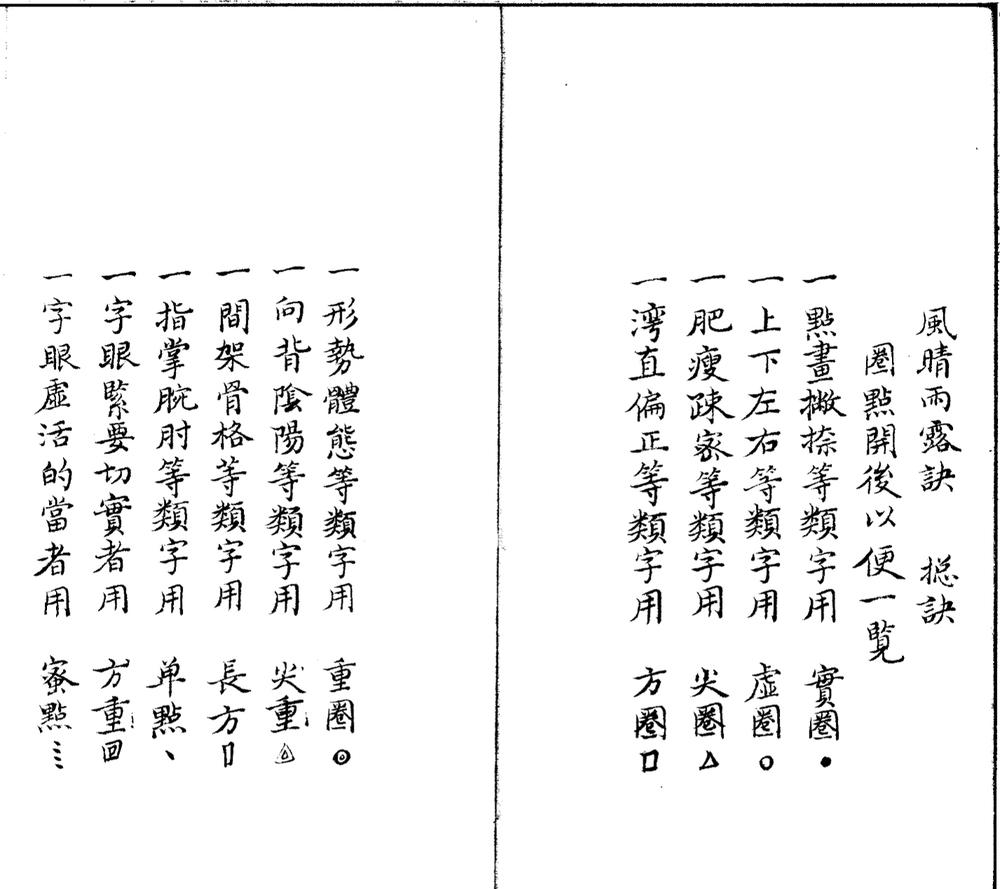 風晴雨露訣 捴訣
圈點開後以便一覧
一點畫撇捺等類字用 實圈●
一上下左右等類字用 虛圈○
一肥瘦踈宻等類字用 尖圈△
一湾直偏正等類字用 方圈□
一形勢體態等類字用 重圈◎
一向背陰陽等類字用 尖重
一間架骨格等類字用 長方▯
一指掌腕肘等類字用 单點丶
一字眼緊要切實者用 方重回
一字眼虛活的當者用 蜜點